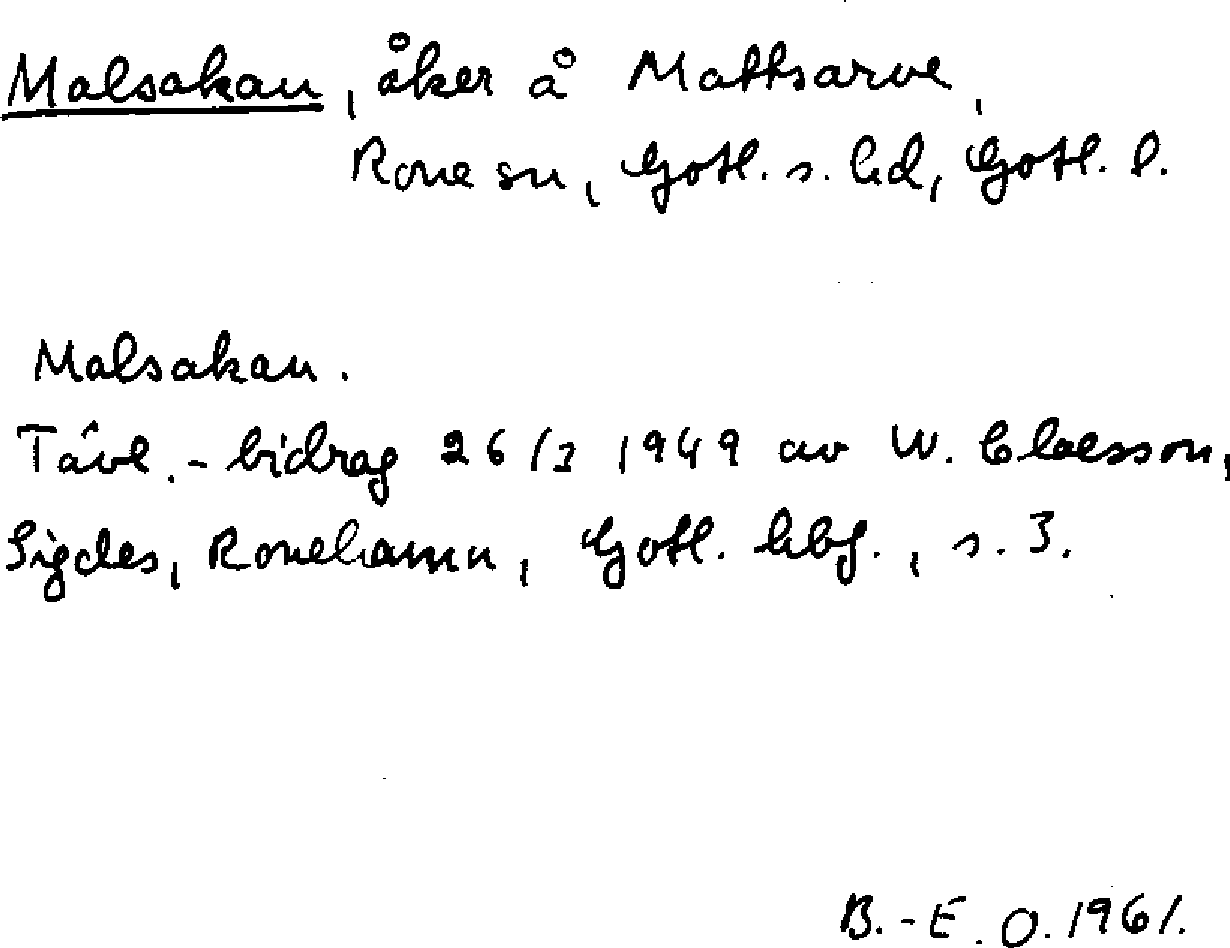 Malsakan, åker å Mattsarve,
Rone sn, Gotl. s. hd, Gotl. l.
Malsakan.
Tävl.-bidrag 26/3 1949 av W. Claesson,
Sigdes, Ronehamn, Gotl. hbf., s. 3.
B.-E. O. 1961.